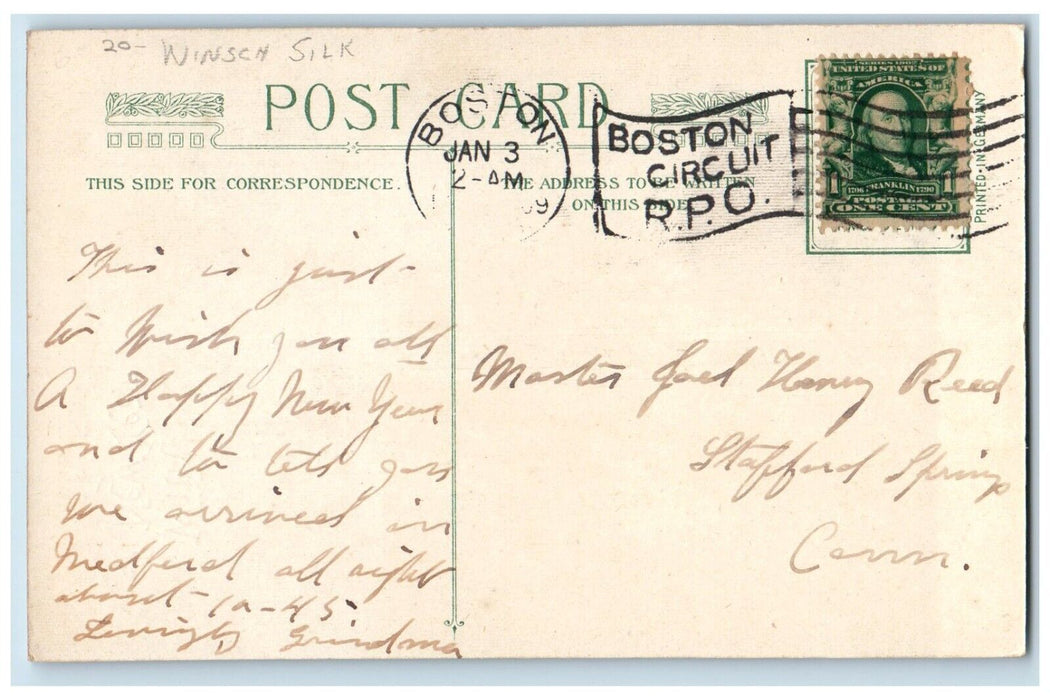 20- WINSCH SILK
POST CARD
BOSTON
JAN 3
2-AM
09
BOSTON
CIRCUIT
R.P.O.
SERIES 1902
UNITED STATES OF
AMERICA
1 1
FRANKLIN
POSTAGE
ONE CENT
PRINTED IN GERMANY
THIS SIDE FOR CORRESPONDENCE.
THE ADDRESS TO BE WRITTEN
ON THIS SIDE
This is just
to wish you all
A Happy New Year
and to tell you
we arrived in
Medford all right
about 10-45
Lovingly Grindma
Master Joel Henry Reed
Stafford Springs
Conn.